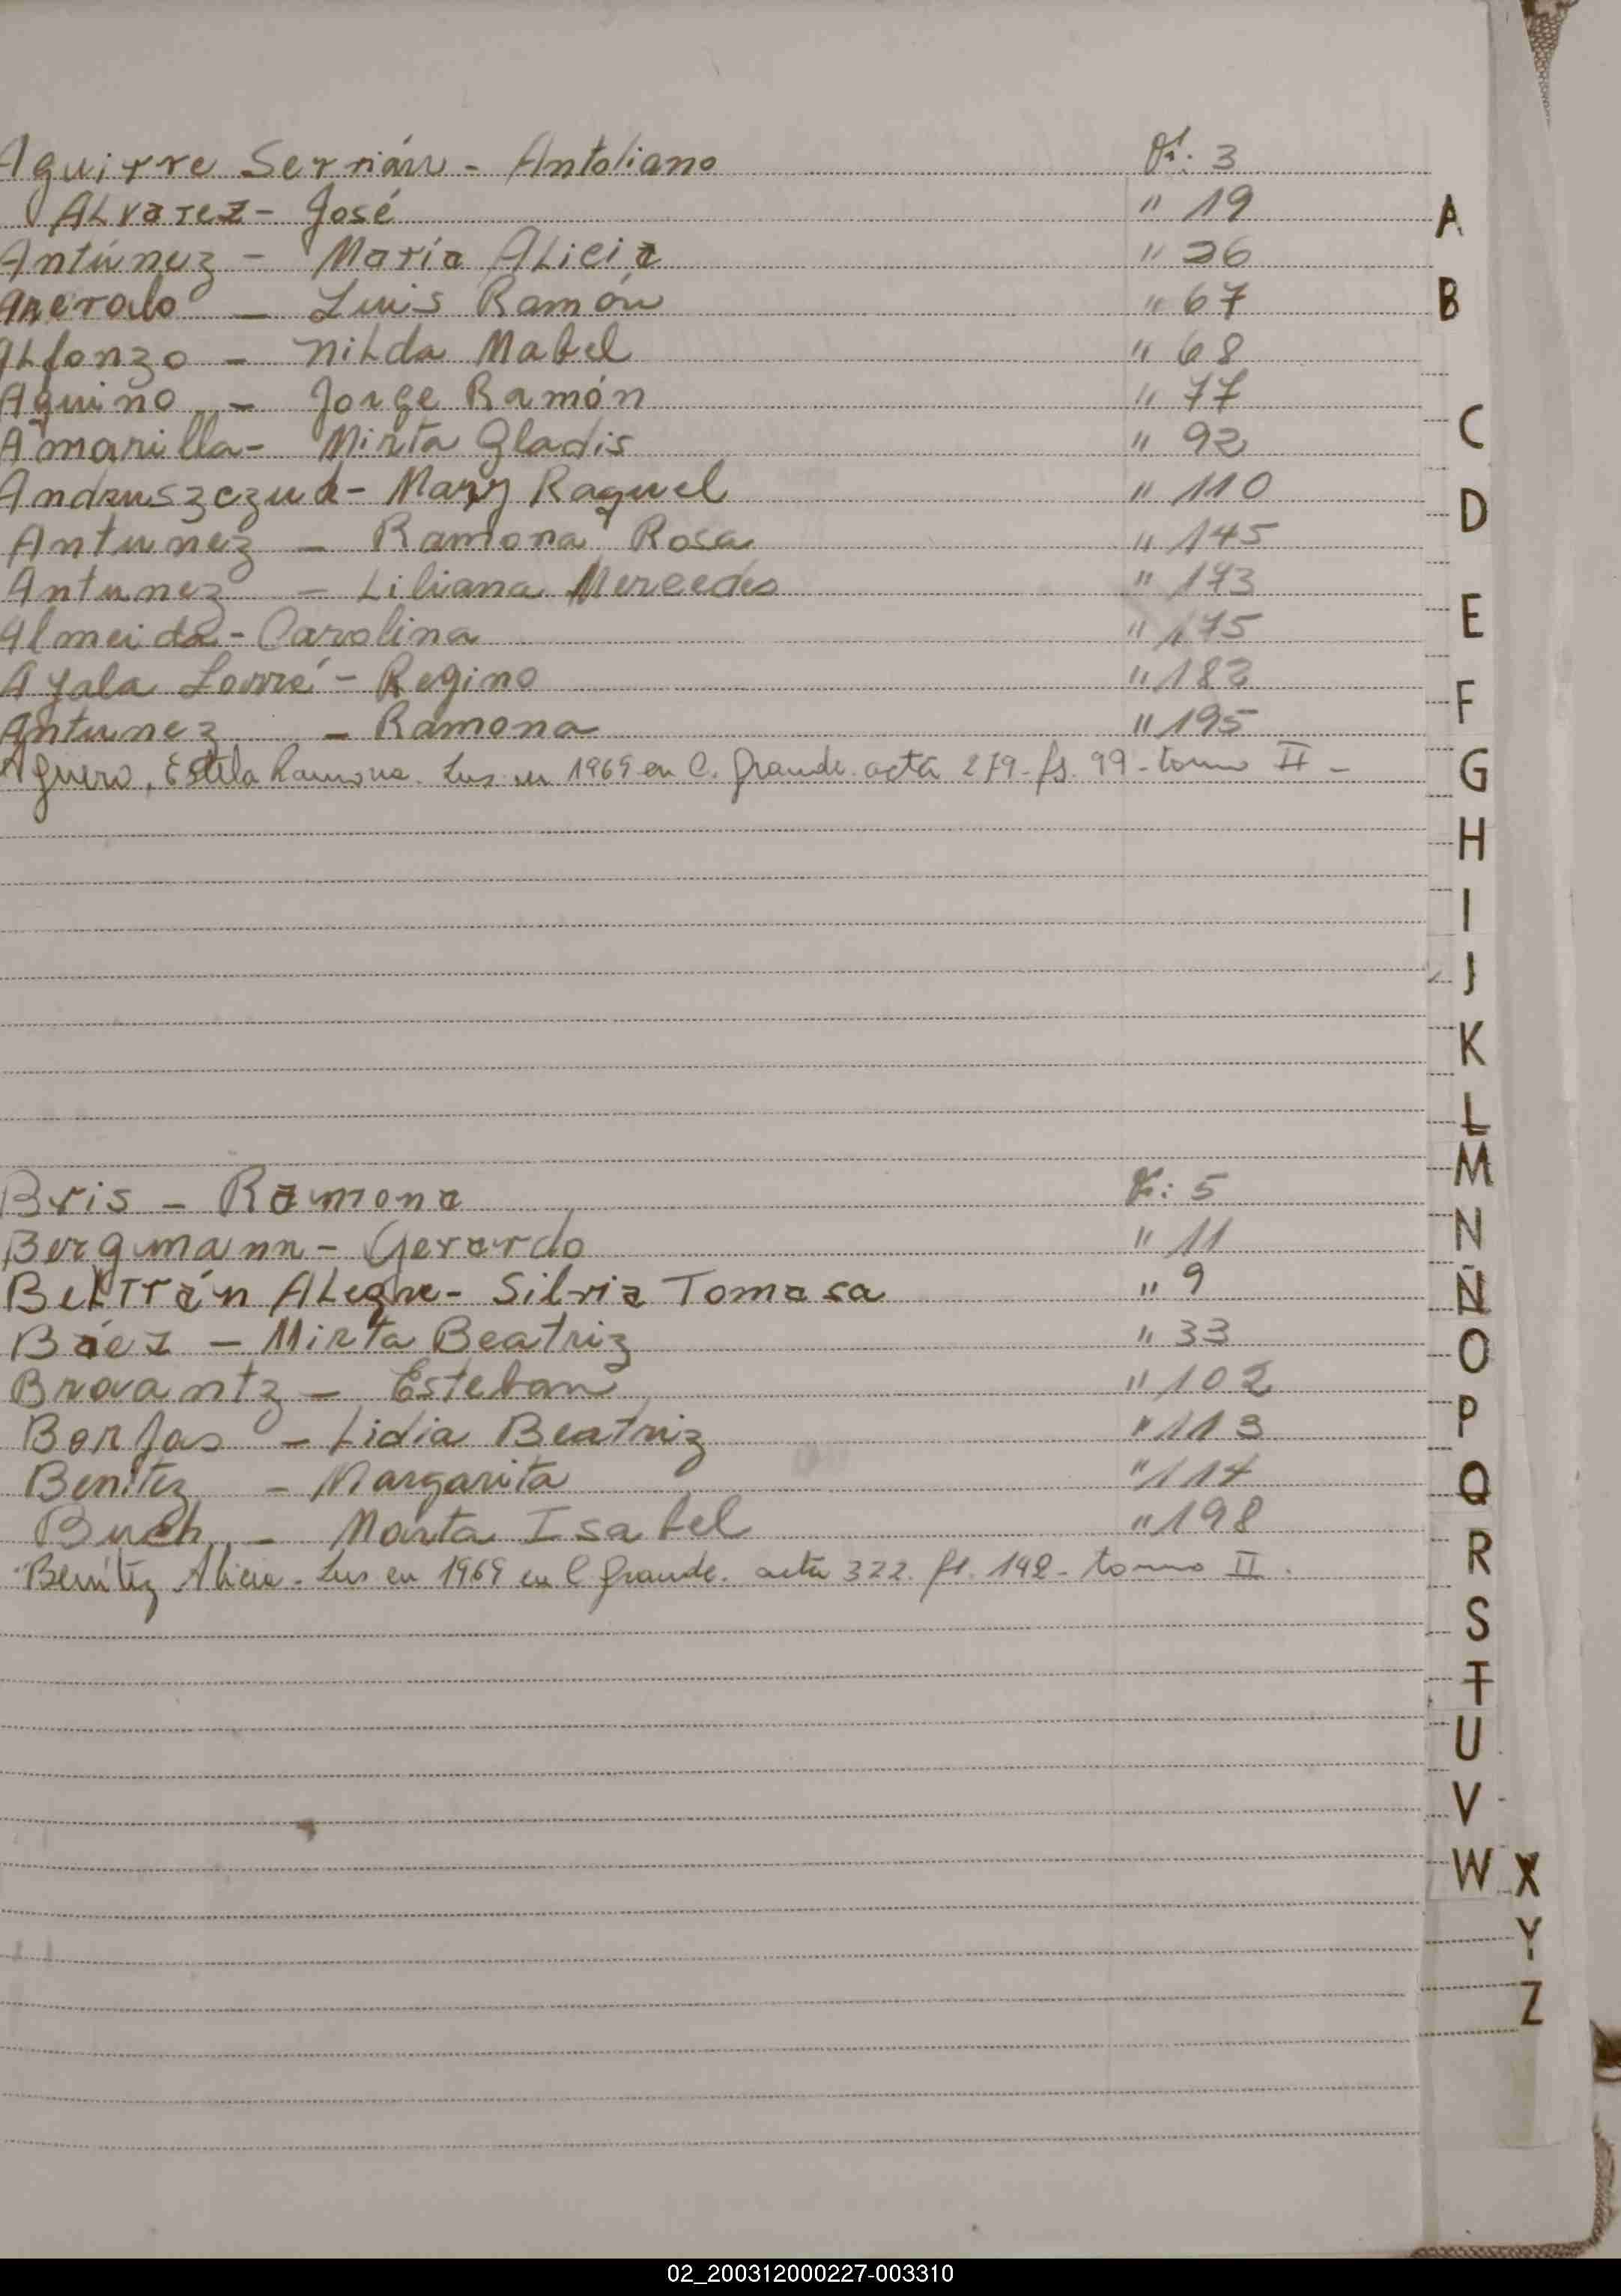 Aguirre Sernián - Antoliano Fº: 3
Alvarez - José " 19
Antúnez - María Alicia " 26
Luis Ramón " 67
Alfonzo - Nilda Mabel " 68
Aquino - Jorge Ramón " 77
Amarilla - Mirta Gladis " 92
Andruszczuk - Mary Raquel " 110
Antunez - Ramona Rosa " 145
Antunez - Liliana Mercedes " 173
Almeida - Carolina " 175
Ayala - Regino " 183
Antunez - Ramona " 195
Aguero, Estela Ramona. Ins en 1969 en C. Grande. acta 279 - fs. 99 - tomo II -
Bris - Ramona Fº: 5
Bergmann - Gerardo " 11
Beltrán Alegre - Silvia Tomasa " 9
Báez - Mirta Beatriz " 33
Brovantz - Esteban " 102
Borjas - Lidia Beatriz " 113
Benítez - Margarita " 114
Buch - Marta Isabel " 198
Benítez Alicia - Ins en 1969 en C Grande. acta 322. fs. 142 - tomo II.
A
B
C
D
E
F
G
H
I
J
K
L
M
N
Ñ
O
P
Q
R
S
T
U
V
W X
Y
Z
02_200312000227-003310